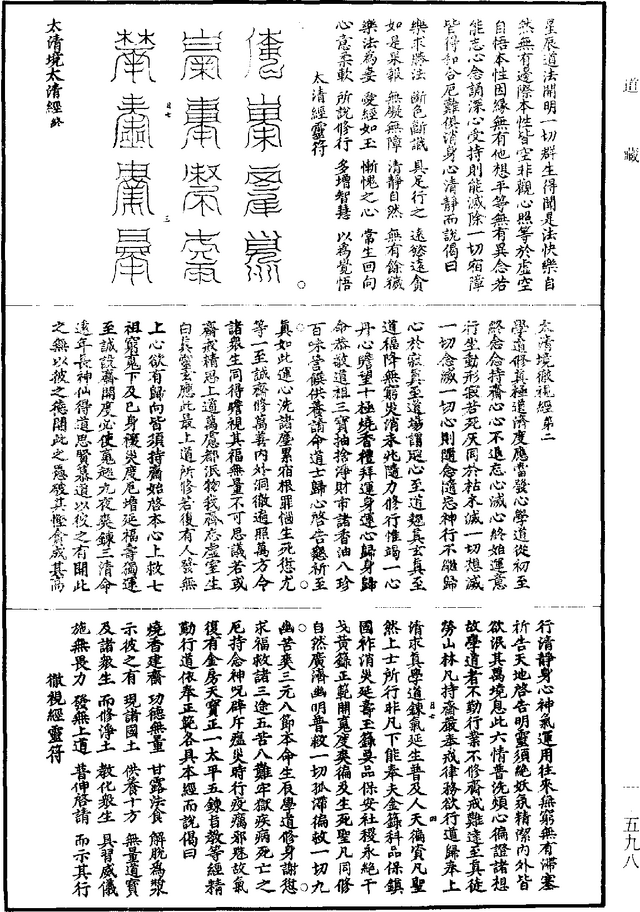 星辰道法開明一切群生得聞是法快樂自
然無有邊際本性皆空非觀心照等於虛空
自悟本性因緣無有他想平等無有異念若
能志心念誦深心受持則能滅除一切宿障
皆得和合厄難俱消身心清靜而說偈曰
樂求勝法 斷色斷識 具足行之 遠慾遠貪
如是果報 無礙無障 清靜自然 無有餘穢
樂法為妻 愛經如玉 慚愧之心 常生回向
心意柔軟 所說修行 多增智慧 以為覺悟
太清經靈符
太清境太清經終
太清境徹視經第二
學道修真極道濟度應當發心學道從初至
終念念持齋心心不退忘心滅心終始運意
行坐動形寂若死灰同於枯木滅一切想滅
一切念滅一切心則隨念隨忘神行不能歸
心於寂真至道場謂起心至道經真玄真至
道福降無窮災消未兆隨力修行惟竭一心
丹心瞻望十極燒香禮拜運身運心歸身歸
命恭敬道祖三寶抽捨淨財市諸香油八珍
百味營饌供養請命道士歸心啓告懇祈至
真如此運心洗諸塵累宿根罪惱生死愆尤
等一至誠齋修萬善內外洞徹遍照萬方令
諸眾生同得瞻視其福無量不可思議若或
齋戒精思上道萬慮都泯物我齊忘虛室生
白真靈玄應此最上道所修若復有人發無
上心欲有歸向皆須持齋始啓本心上救七
祖窮魂下及己身穰災度厄增延福壽獨運
至誠設齋開度必使魂起九夜爽鍊三清命
遠年長神仙得道思賢慕道以彼之有開此
之無以彼之德開此之惡破其慳貪成其而
行清靜身心神氣運用往來無窮無有滯塞
祈告天地啓告明靈須絕妖氛精潔內外皆
欲泯其萬境息此六情普洗煩心徧證諸想
故學道者不勤行業不修齋戒難達至真徒
勞山林凡持齋嚴奉戒律務欲行道歸奉上
清求真學道鍊氣延生普及人天徧資凡聖
然上士所行非凡下能奉夫金籙科品保鎮
國祚消災延壽玉籙妥品保安社稷永絕干
戈黃籙正範開魂度爽徧及生死聖凡同修
自然廣濟幽明普救一切孤滯徧救一切九
幽苦爽三元八節本命生辰學道修身謝愆
求福救諸三途五苦八難牢獄疾病死亡之
厄持念神呪辟斥瘟災時行疫癘邪魅故氣
復有金房天寶正一太平五鍊自教等經精
勤行道依奉正範各具本經而說偈曰
燒香建齋 功德無量 甘露法食 解脫為漿
示彼之有 現諸國土 供養十方 無量道寶
及諸眾生 而修淨土 教化眾生 具習威儀
施無畏力 發無上道 普伸啓請 而示其行
徹視經靈符
道藏
一 五九八